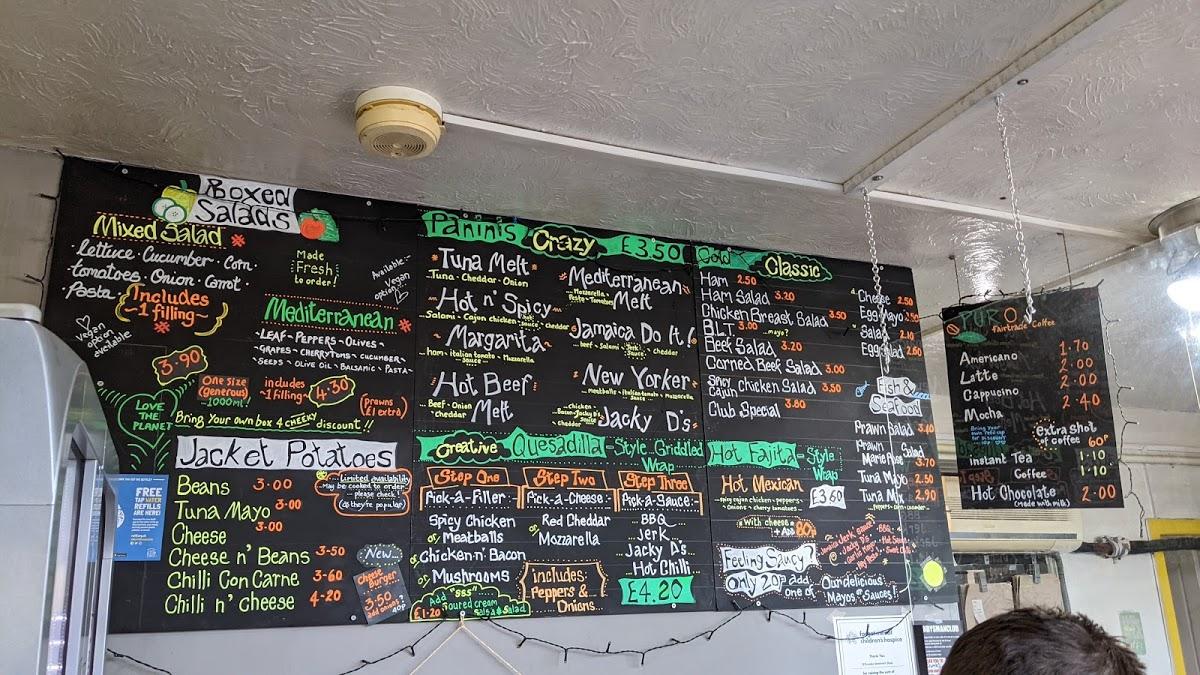 Boxed
Salads
Mixed Salad
Lettuce · Cucumber · Corn ·
tomatoes · Onion · Carrot ·
Pasta
Includes
~1 filling~
Made
Fresh
to order!
Available:-
Vegan
options
Vegan
option
available
3.90
Mediterranean
·LEAF · PEPPERS · OLIVES ·
GRAPES · CHERRYTOMS · CUCUMBER ·
SEEDS · OLIVE OIL · BALSAMIC · PASTA ·
One Size
(generous)
~1000ml
includes
~1 filling~
4.30
(prawns
£1 extra)
LOVE
THE
PLANET
Bring your own box 4 CHEEKY discount!!
Jacket Potatoes
Beans 3·00
Tuna Mayo 3·00
Cheese 3·00
Cheese n' Beans 3-50
Chilli Con Carne 3-60
Chilli n' cheese 4-20
Limited availability
May be cooked to order
please check!
(they're popular)
New
Cheese
Burger
3:50
add onions? 40p
FREE
TAP WATER
REFILLS
ARE HERE!
Paninis Crazy £3.50
Tuna Melt
Tuna · Cheddar · Onion
Hot n' Spicy
Salami · Cajun chicken · cheddar
Margarita
ham · italian tomato sauce · Mozzarella
Hot Beef
Melt
Beef · Onion
Cheddar
Mediterranean
Melt
Mozzarella
Pesto · Tomatoes
Jamaica Do It!
beef · Salami · Jerk Sauce · cheddar
New Yorker
Meatballs · Italian tomato Sauce · Mozzarella
Jacky D's
Chicken
Bacon · Jacky D's Sauce
Cheddar
Creative Quesadilla -Style Griddled
Wrap
Step One
Pick-a-Filler
Spicy Chicken
or Meatballs
or Chicken n' Bacon
or Mushrooms
Add "SSS"
£1·20 Soured cream
Salsa & Salad
Step Two
Pick-a-Cheese
Red Cheddar
or Mozzarella
includes:
Peppers &
Onions
Step Three
Pick-a-Sauce
BBQ
Jerk
Jacky D's
Hot Chilli
£4.20
Cold Classic
Ham 2.50
Ham Salad 3.20
Chicken Breast Salad 3.50
BLT 3.00 mayo?
Beef Salad 3.20
Corned Beef Salad 3.00
Spicy Cajun chicken Salad 3.50
Club Special 3.80
Cheese 2.50
Egg Mayo 2.50
Salad 2.10
Egg Salad 2.60
Fish &
Seafood
Prawn Salad
Prawn
Marie Rose Salad 3.70
Tuna Mayo 2.50
Tuna Mix 2.90
Peppers · corn · cucumber
Hot Fajita -Style
Wrap
Hot Mexican
spicy cajun chicken · peppers ·
onions · cherry tomatoes
£3.60
*With cheese
+ Add 80p
Feeling Saucy?
Only 20p add
one of
Our delicious
Mayos & Sauces!
PURO
Fairtrade Coffee
Americano 1.70
Latte 2.00
Cappucino 2.00
Mocha 2·40
Extra Shot
of coffee 60p
Instant Tea 1·10
Coffee 1·10
Hot Chocolate 2.00
(Made with milk)
children's hospice
Thank You